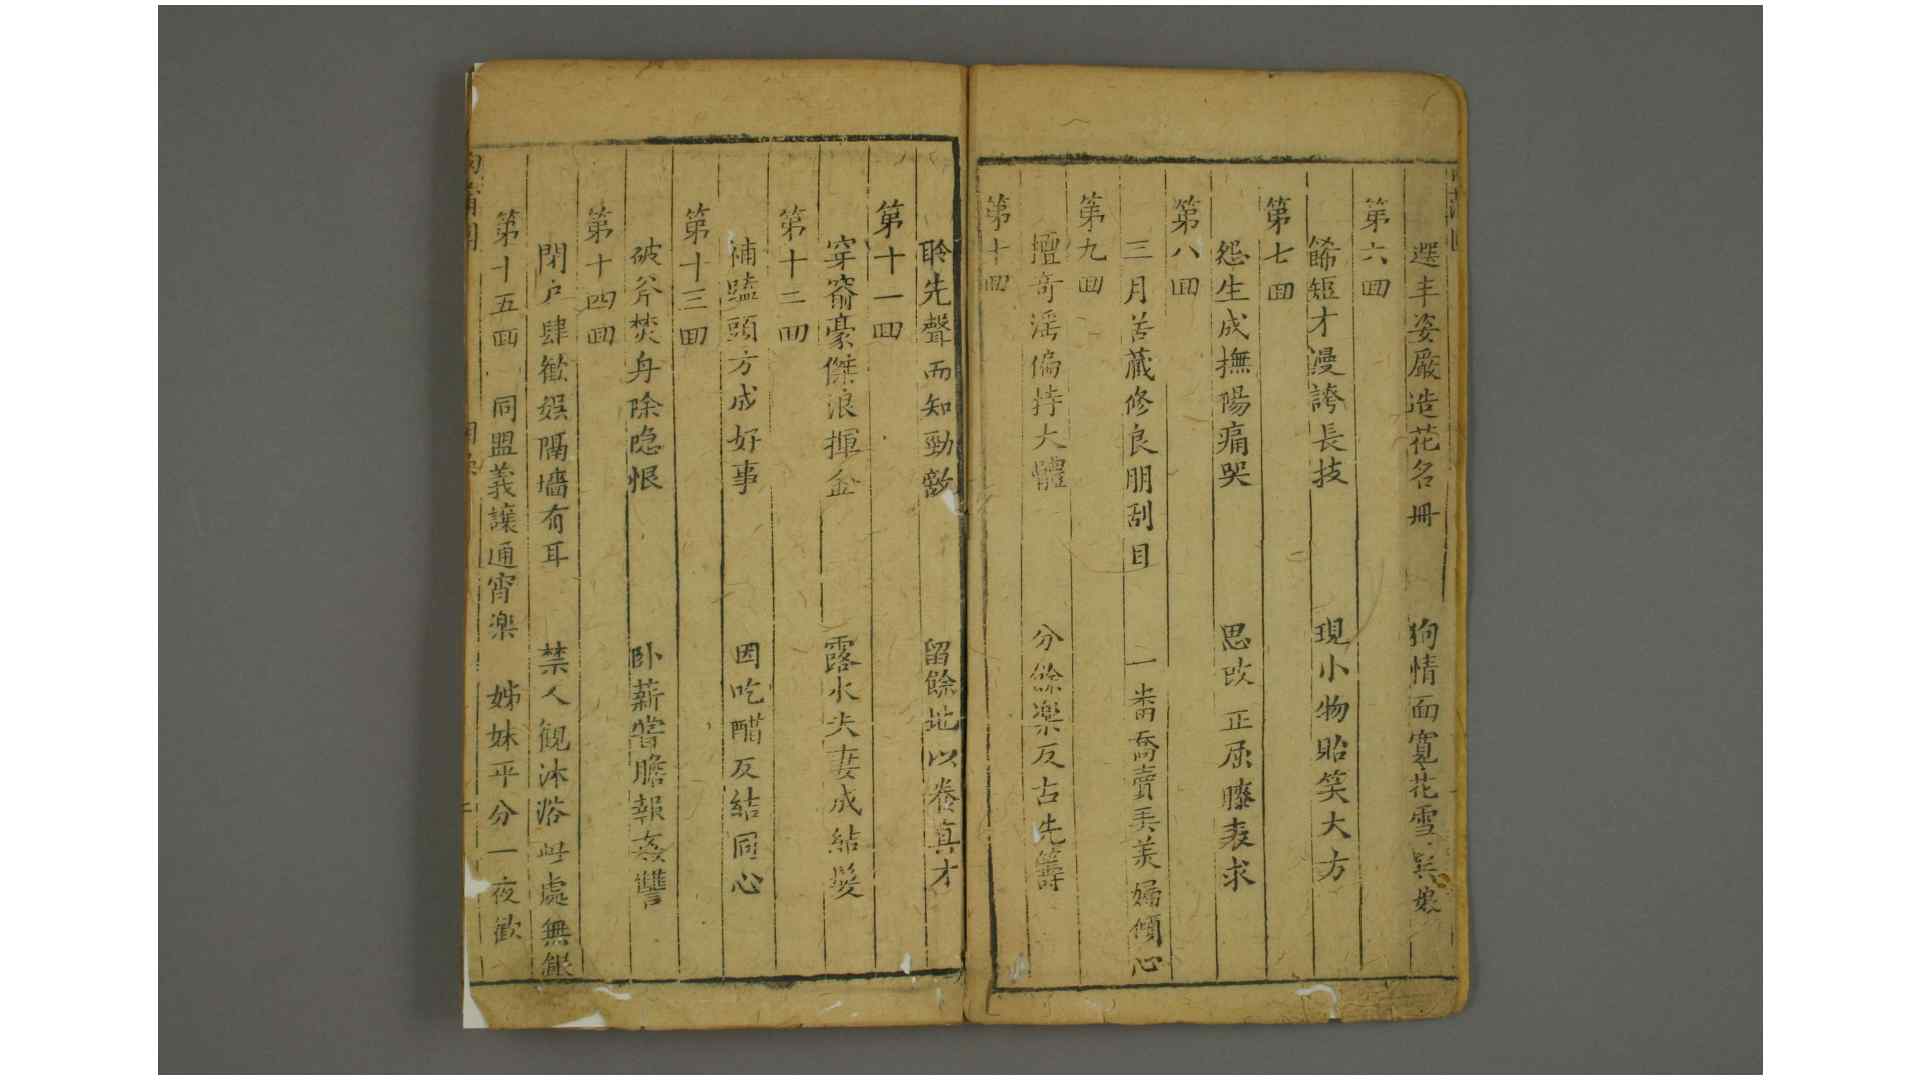 選丰姿嚴造花名冊 狥情面寬花雪娘
第六回
餙短才漫誇長技 現小物貽笑大方
第七回
怨生成撫陽痛哭 思改正屈膝哀求
第八回
三月苦藏修良朋刮目 一番喬賣弄美婦傾心
第九回
擅奇淫偏持大體 分餘樂反占先籌
第十回
聆先聲而知勁敵 留餘地以養真才
第十一回
穿窬豪傑浪揮金 露水夫妻成結髮
第十二回
補䃲頭方成好事 因吃醋反結同心
第十三回
破斧焚舟除隐恨 卧薪嘗膽報姦讐
第十四回
閉户肆歡娛隔墻有耳 禁人觀沐浴此處無銀
第十五回 同盟義讓通宵樂 姊妹平分一夜歡